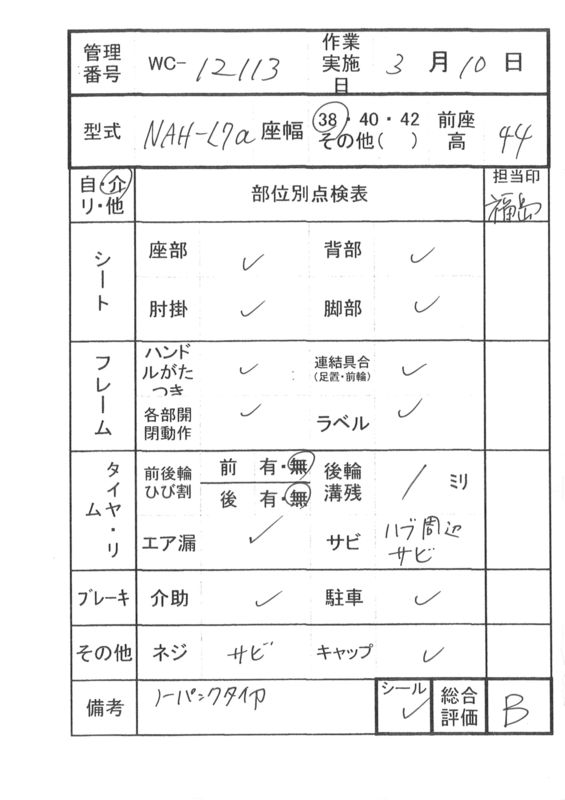 管理番号 WC-12113 作業実施日 3月10日
型式 NAH-L7a 座幅 38・40・42 その他( ) 前座高 44
自・介リ・他 部位別点検表 担当印 福島
シート 座部 ✓ 背部 ✓
肘掛 ✓ 脚部 ✓
フレーム ハンドルがたつき ✓ 連結具合(足置・前輪) ✓
各部開閉動作 ✓ ラベル ✓
タイヤ・リム 前後輪ひび割 前 有・無 後輪溝残 / ミリ
後 有・無
エア漏 ✓ サビ ハブ周辺サビ
ブレーキ 介助 ✓ 駐車 ✓
その他 ネジ サビ キャップ ✓
備考 ノーパンクタイヤ シール ✓ 総合評価 B